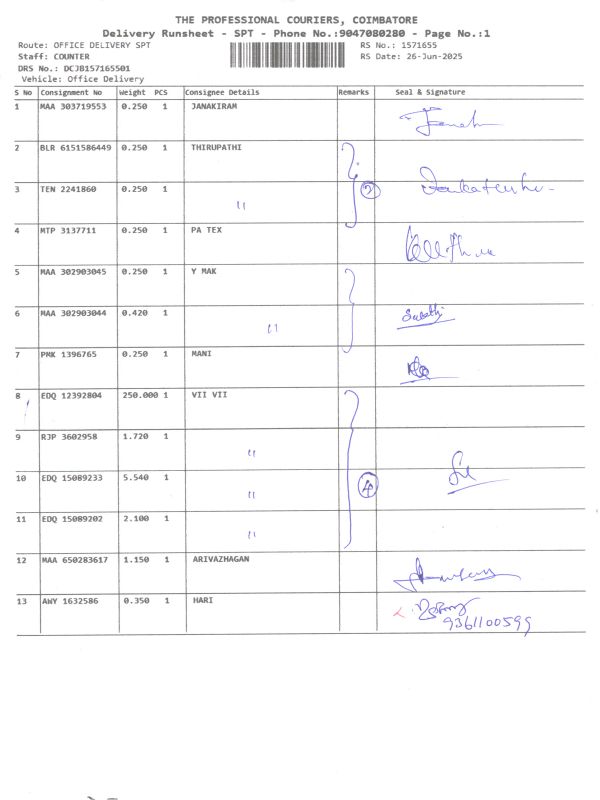 THE PROFESSIONAL COURIERS, COIMBATORE
Delivery Runsheet - SPT - Phone No.:9047080280 - Page No.:1
Route: OFFICE DELIVERY SPT RS No.: 1571655
Staff: COUNTER RS Date: 26-Jun-2025
DRS No.: DCJB157165501
Vehicle: Office Delivery
S No Consignment No Weight PCS Consignee Details Remarks Seal & Signature
1 MAA 303719553 0.250 1 JANAKIRAM
2 BLR 6151586449 0.250 1 THIRUPATHI
3 TEN 2241860 0.250 1 " 2
4 MTP 3137711 0.250 1 PA TEX
5 MAA 302903045 0.250 1 Y MAK
6 MAA 302903044 0.420 1 "
7 PMK 1396765 0.250 1 MANI
8 EDQ 12392804 250.000 1 VII VII
9 RJP 3602958 1.720 1 "
10 EDQ 15089233 5.540 1 " 4
11 EDQ 15089202 2.100 1 "
12 MAA 650283617 1.150 1 ARIVAZHAGAN
13 AWY 1632586 0.350 1 HARI
9361100599